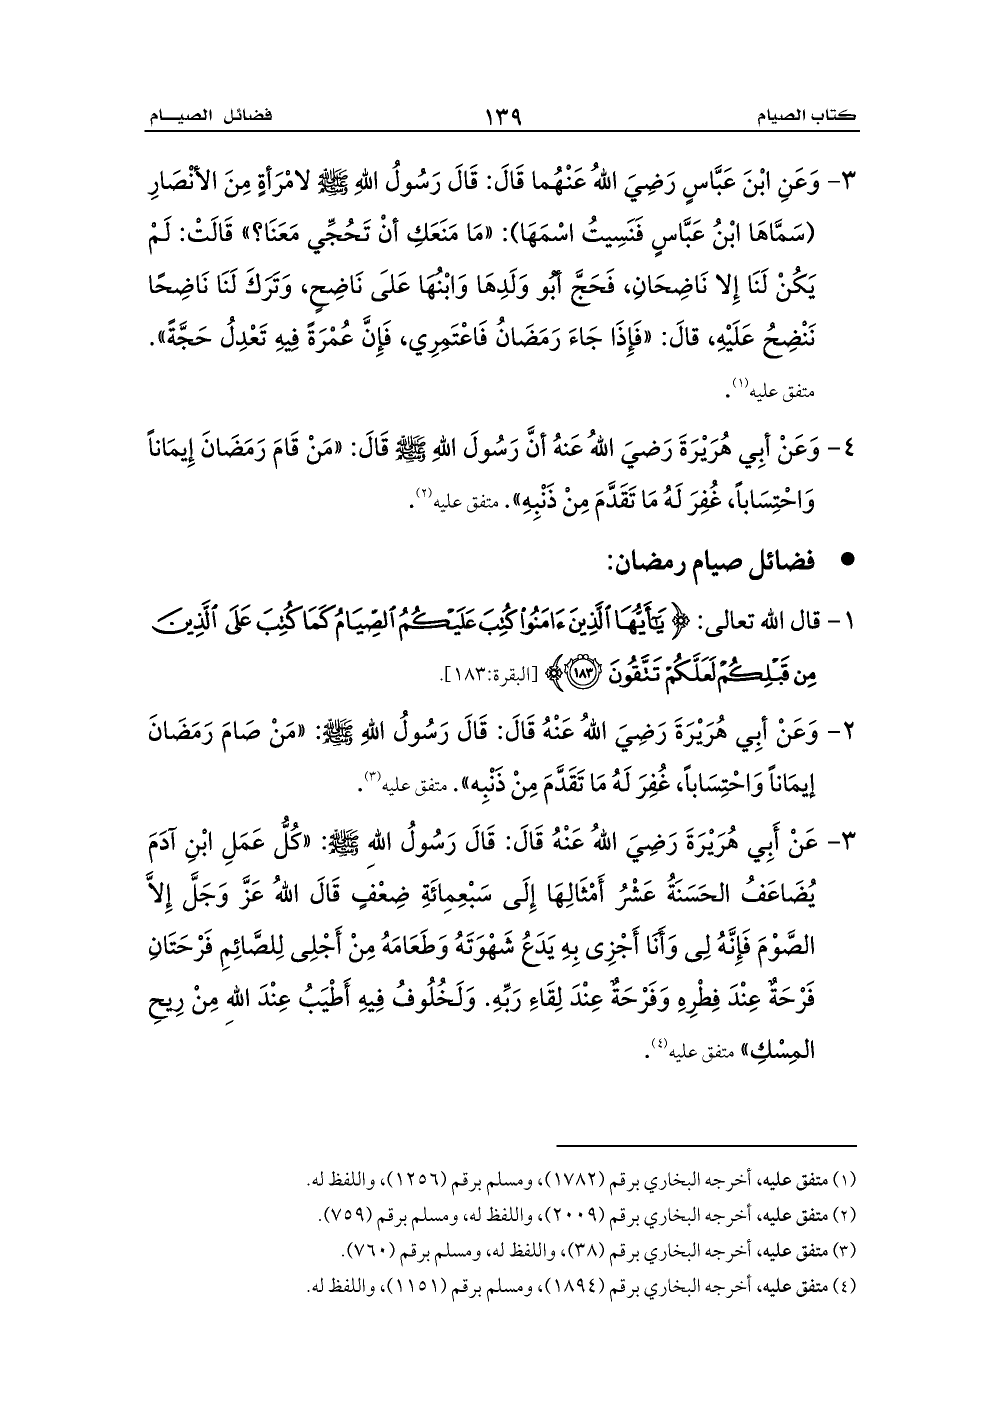 كتاب الصيام ١٣٩ فضائل الصيـــام
٣- وَعَنِ ابْنَ عَبَّاسٍ رَضِيَ اللهُ عَنْهُما قَالَ: قَالَ رَسُولُ اللهِ ﷺ لامْرَأةٍ مِنَ الأنْصَارِ
(سَمَّاهَا ابْنُ عَبَّاسٍ فَنَسِيتُ اسْمَهَا): «مَا مَنَعَكِ أنْ تَحُجِّي مَعَنَا؟» قَالَتْ: لَمْ
يَكُنْ لَنَا إلا نَاضِحَانِ، فَحَجَّ أبُو وَلَدِهَا وَابْنُهَا عَلَى نَاضِحٍ، وَتَرَكَ لَنَا نَاضِحًا
نَنْضِحُ عَلَيْهِ، قالَ: «فَإِذَا جَاءَ رَمَضَانُ فَاعْتَمِرِي، فَإِنَّ عُمْرَةً فِيهِ تَعْدِلُ حَجَّةً».
متفق عليه(١).
٤- وَعَنْ أبِي هُرَيْرَةَ رَضيَ اللهُ عَنهُ أنَّ رَسُولَ اللهِ ﷺ قَالَ: «مَنْ قَامَ رَمَضَانَ إيمَاناً
وَاحْتِسَاباً، غُفِرَ لَهُ مَا تَقَدَّمَ مِنْ ذَنْبِهِ». متفق عليه(٢).
● فضائل صيام رمضان:
١- قال الله تعالى: ﴿يَٰٓأَيُّهَا ٱلَّذِينَ ءَامَنُوا۟ كُتِبَ عَلَيْكُمُ ٱلصِّيَامُ كَمَا كُتِبَ عَلَى ٱلَّذِينَ
مِن قَبْلِكُمْ لَعَلَّكُمْ تَتَّقُونَ ١٨٣﴾ [البقرة:١٨٣].
٢- وَعَنْ أبِي هُرَيْرَةَ رَضِيَ اللهُ عَنْهُ قَالَ: قَالَ رَسُولُ اللهِ ﷺ: «مَنْ صَامَ رَمَضَانَ
إيمَاناً وَاحْتِسَاباً، غُفِرَ لَهُ مَا تَقَدَّمَ مِنْ ذَنْبِه». متفق عليه(٣).
٣- عَنْ أَبِي هُرَيْرَةَ رَضِيَ اللهُ عَنْهُ قَالَ: قَالَ رَسُولُ اللهِ ﷺ: «كُلُّ عَمَلِ ابْنِ آدَمَ
يُضَاعَفُ الحَسَنَةُ عَشْرُ أَمْثَالِهَا إِلَى سَبْعِمِائَةِ ضِعْفٍ قَالَ اللهُ عَزَّ وَجَلَّ إِلاَّ
الصَّوْمَ فَإِنَّهُ لِى وَأَنَا أَجْزِى بِهِ يَدَعُ شَهْوَتَهُ وَطَعَامَهُ مِنْ أَجْلِى لِلصَّائِمِ فَرْحَتَانِ
فَرْحَةٌ عِنْدَ فِطْرِهِ وَفَرْحَةٌ عِنْدَ لِقَاءِ رَبِّهِ. وَلَخُلُوفُ فِيهِ أَطْيَبُ عِنْدَ اللهِ مِنْ رِيحِ
المِسْكِ» متفق عليه(٤).
(١) متفق عليه، أخرجه البخاري برقم (١٧٨٢)، ومسلم برقم (١٢٥٦)، واللفظ له.
(٢) متفق عليه، أخرجه البخاري برقم (٢٠٠٩)، واللفظ له، ومسلم برقم (٧٥٩).
(٣) متفق عليه، أخرجه البخاري برقم (٣٨)، واللفظ له، ومسلم برقم (٧٦٠).
(٤) متفق عليه، أخرجه البخاري برقم (١٨٩٤)، ومسلم برقم (١١٥١)، واللفظ له.